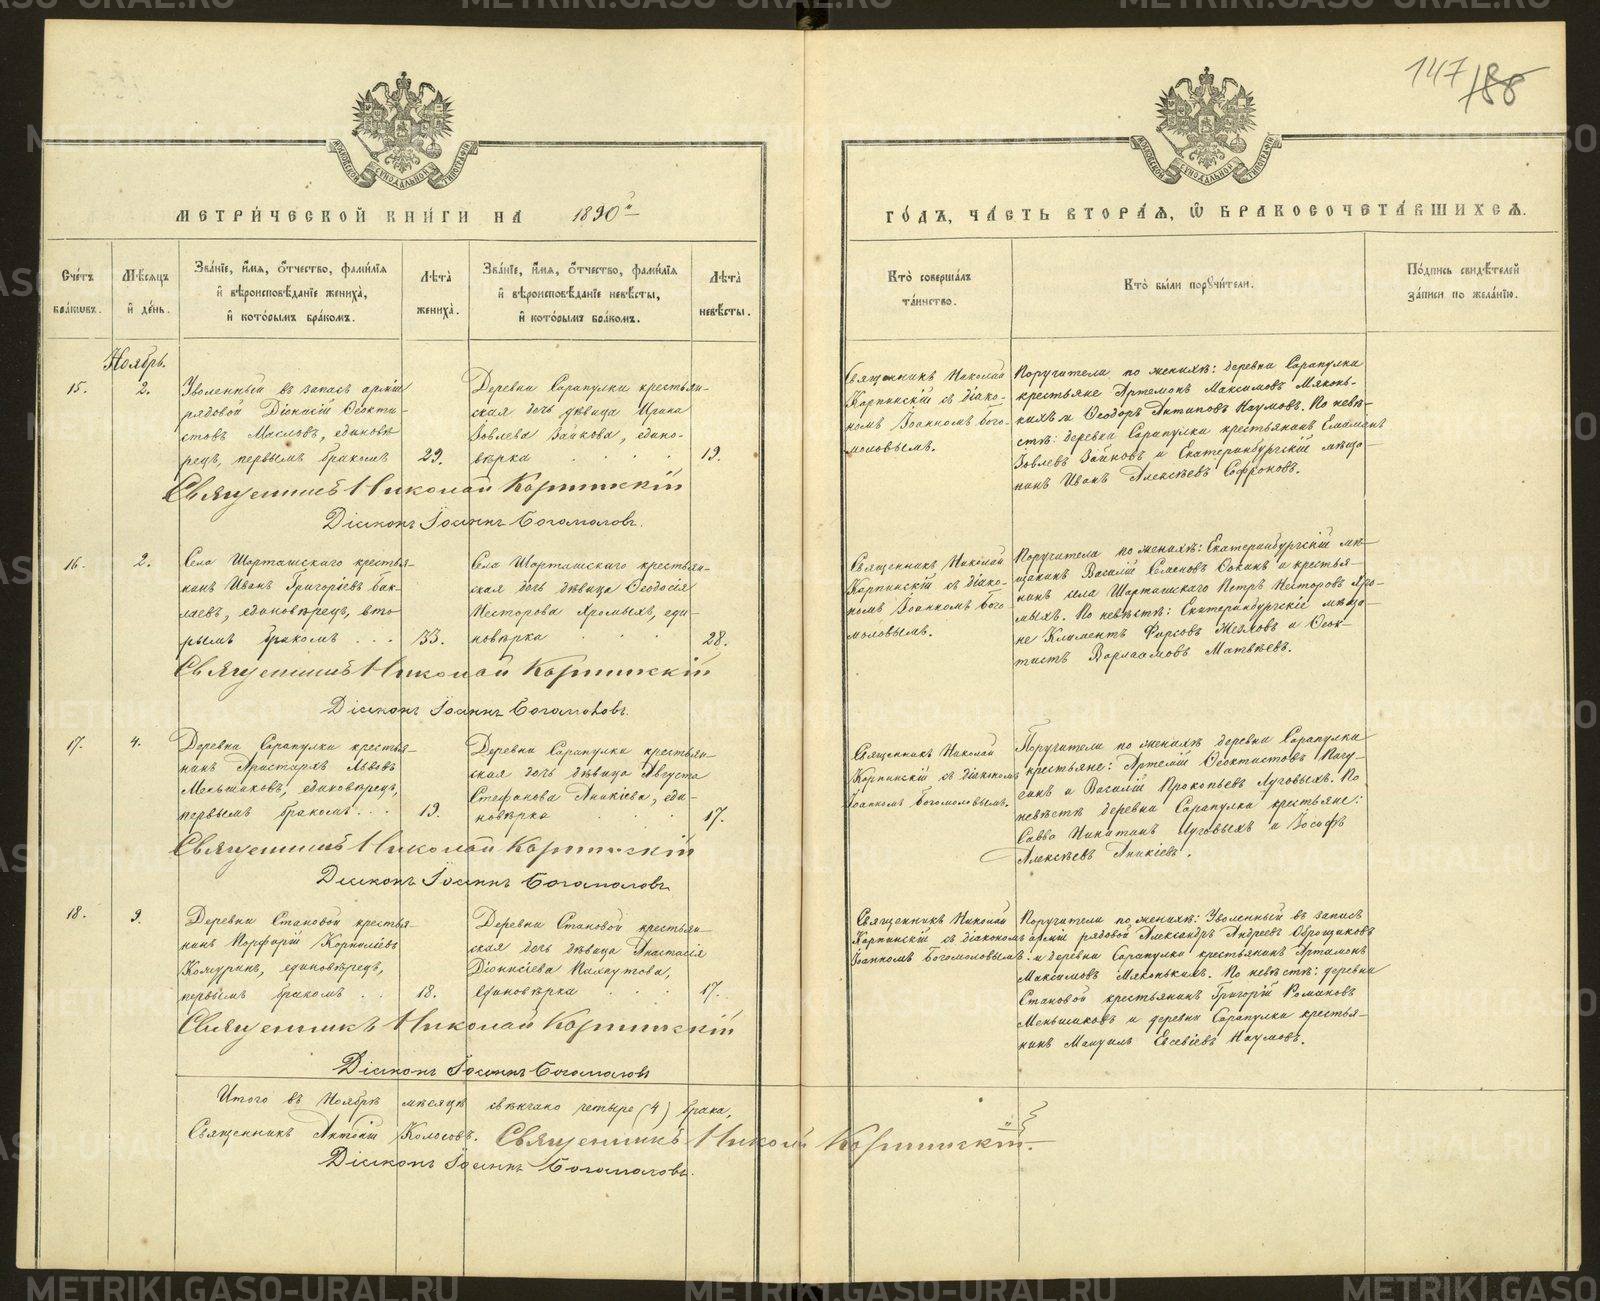 METRIKI.GASO-URAL.RU
147
188
МЕТРИ́ЧЕСКОЙ КНИ́ГИ НА 1890й
ГО́ДЪ, ЧА́СТЬ ВТОРА́Я, Ѡ БРАКОСОЧЕТА́ВШИХСЯ.
Сче́тъ бра́кѡвъ.
Мѣ́сяцъ и҆ де́нь.
Зва́нїе, и҆́мя, ѻ҆́тчество, фами́лїя
и҆ вѣроисповѣ́данїе жениха̀,
и҆ кото́рымъ бра́комъ.
Лѣта̀ жениха̀.
Зва́нїе, и҆́мя, ѻ҆́тчество, фами́лїя
и҆ вѣроисповѣ́данїе невѣ́сты,
и҆ кото́рымъ бра́комъ.
Лѣта̀ невѣ́сты.
Кто̀ соверша́лъ
та́инство.
Кто̀ бы́ли порꙋчи́тели.
По́дпись свидѣ́телей
за́писи по жела́нїю.
Ноябрь.
15.
2.
Уволенный въ запасъ арміи
рядовой Діонисій Ѳеокти-
стовъ Масловъ, единовѣ
рецъ, первымъ бракомъ
29.
Деревни Сарапулки крестьян-
ская дочь дѣвица Ирина
Іовлева Зайкова, едино-
вѣрка . . . .
19.
Священникъ Николай
Карпинскій съ діако-
номъ Іоанномъ Бого-
моловымъ.
Поручители по женихѣ: деревни Сарапулки
крестьяне Артемонъ Максимовъ Мяконь-
кихъ и Ѳеодоръ Антиповъ Наумовъ. По невѣ-
стѣ: деревни Сарапулки крестьянинъ
Іовлевъ Зайковъ и Екатеринбургскій мѣща-
нинъ Иванъ Алексѣевъ Софроновъ.
Священникъ Николай Карпинскій
Діаконъ Іоаннъ Богомоловъ.
16.
2.
Села Шарташскаго крестья-
нинъ Иванъ Григоріевъ Бак-
лаевъ, единовѣрецъ, вто
рымъ бракомъ . . .
33.
Села Шарташскаго крестьян-
ская дочь дѣвица Ѳеодосія
Несторова Яромыхъ, еди-
новѣрка . . .
28.
Священникъ Николай
Карпинскій съ діако-
номъ Іоанномъ Бого
моловымъ.
Поручители по женихѣ: Екатеринбургскій мѣ-
щанинъ Василій Семеновъ и крестья-
нинъ села Шарташскаго Петръ Несторовъ Яро-
мыхъ. По невѣстѣ: Екатеринбургскіе мѣща-
не Климентъ Фирсовъ и Ѳеок-
тистъ Варлаамовъ Матвѣевъ.
Священникъ Николай Карпинскій
Діаконъ Іоаннъ Богомоловъ.
17.
4.
Деревни Сарапулки крестья-
нинъ Аристархъ Львовъ
Меньшиковъ, единовѣрецъ,
первымъ бракомъ . . .
19.
Деревни Сарапулки крестьян-
ская дочь дѣвица Августа
Стефанова Аникіева, еди-
новѣрка . . .
17.
Священникъ Николай
Карпинскій съ діакономъ
Іоанномъ Богомоловымъ.
Поручители по женихѣ деревни Сарапулки
крестьяне: Артемій Ѳеоктистовъ
и Василій Прокопьевъ Луговыхъ. По
невѣстѣ деревни Сарапулки крестьяне:
Савва Никитинъ Луговыхъ и Іосифъ
Алексѣевъ Аникіевъ.
Священникъ Николай Карпинскій
Діаконъ Іоаннъ Богомоловъ
18.
9.
Деревни Становой крестья-
нинъ Порфирій Корниліевъ
Кожуринъ, единовѣрецъ,
первымъ бракомъ . .
18.
Деревни Становой крестьян-
ская дочь дѣвица Анастасія
Діонисіева Пахаутова,
единовѣрка . . .
17.
Священникъ Николай
Карпинскій съ діакономъ
Іоанномъ Богомоловымъ.
Поручители по женихѣ: Уволенный въ запасъ
арміи рядовой Александръ Андреевъ Оброщиковъ
и деревни Сарапулки крестьянинъ Артамонъ
Максимовъ Мяконькихъ. По невѣстѣ: деревни
Становой крестьянинъ Григорій Романовъ
Меньшиковъ и деревни Сарапулки крестья-
нинъ Мануилъ Евсевіевъ Наумовъ.
Священникъ Николай Карпинскій
Діаконъ Іоаннъ Богомоловъ
Итого въ Ноябрѣ мѣсяцѣ свѣнчано четыре (4) брака.
Священникъ Колосовъ. Священникъ Николай Карпинскій.
Діаконъ Іоаннъ Богомоловъ.
METRIKI.GASO-URAL.RU